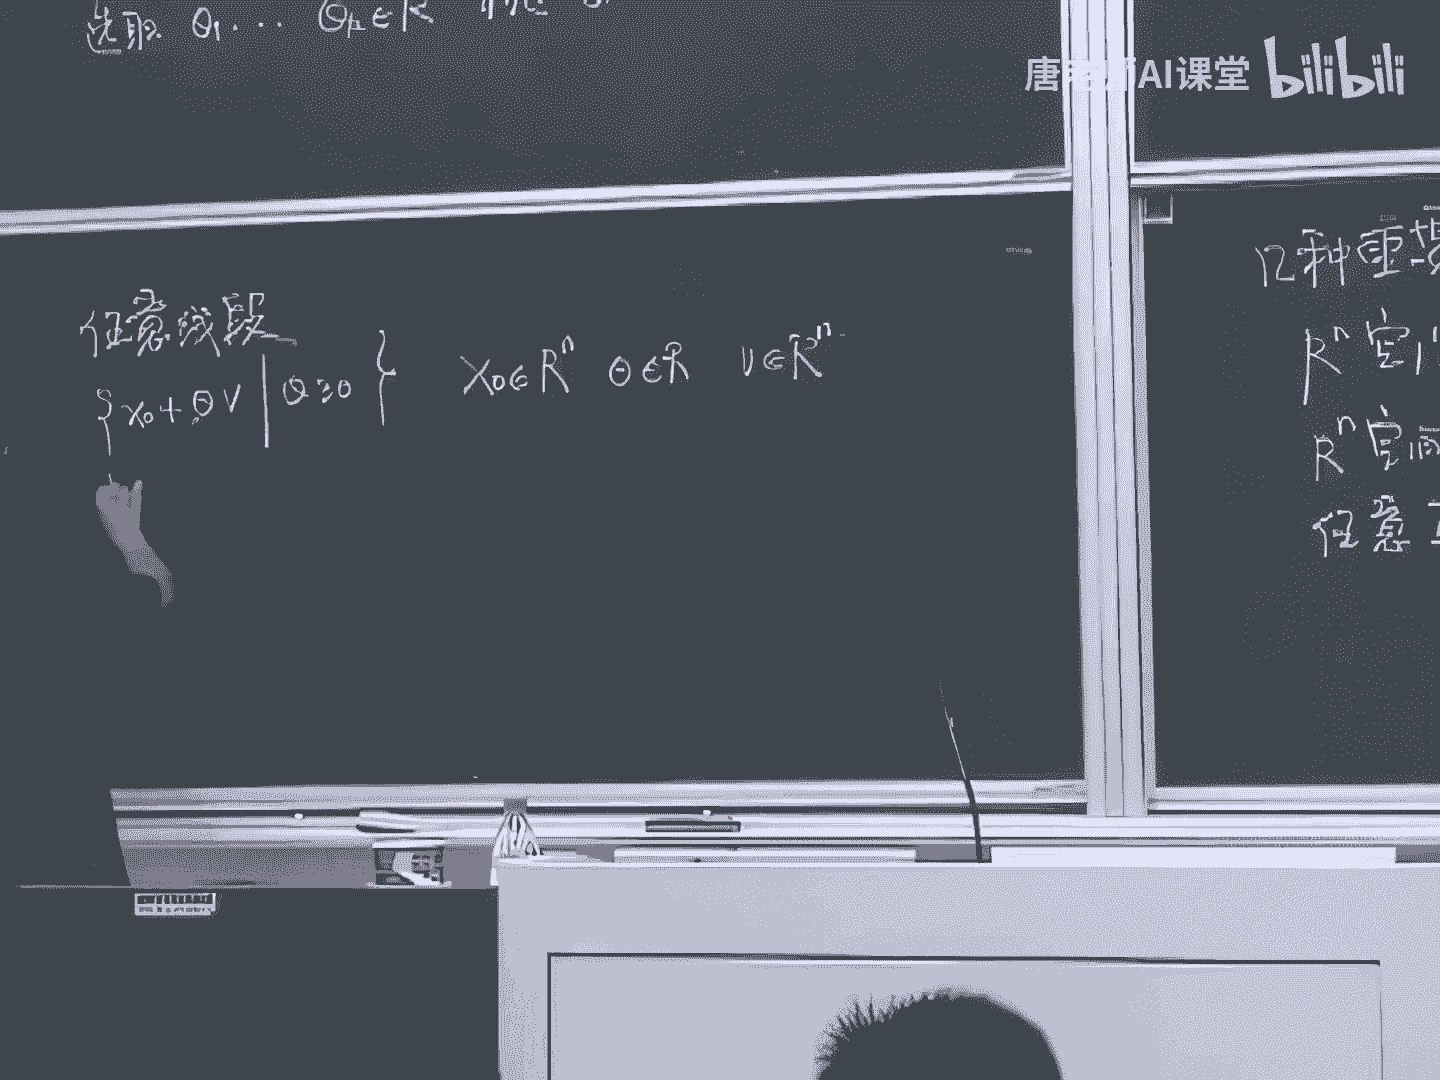 选取 θ₁ ... θₖ ∈ R
唐 AI课堂 bilibili
任意线段
{ x₀ + θ v | θ ≥ 0 } x₀ ∈ Rⁿ θ ∈ R v ∈ Rⁿ
几种重
Rⁿ 空
Rⁿ 空间
任意